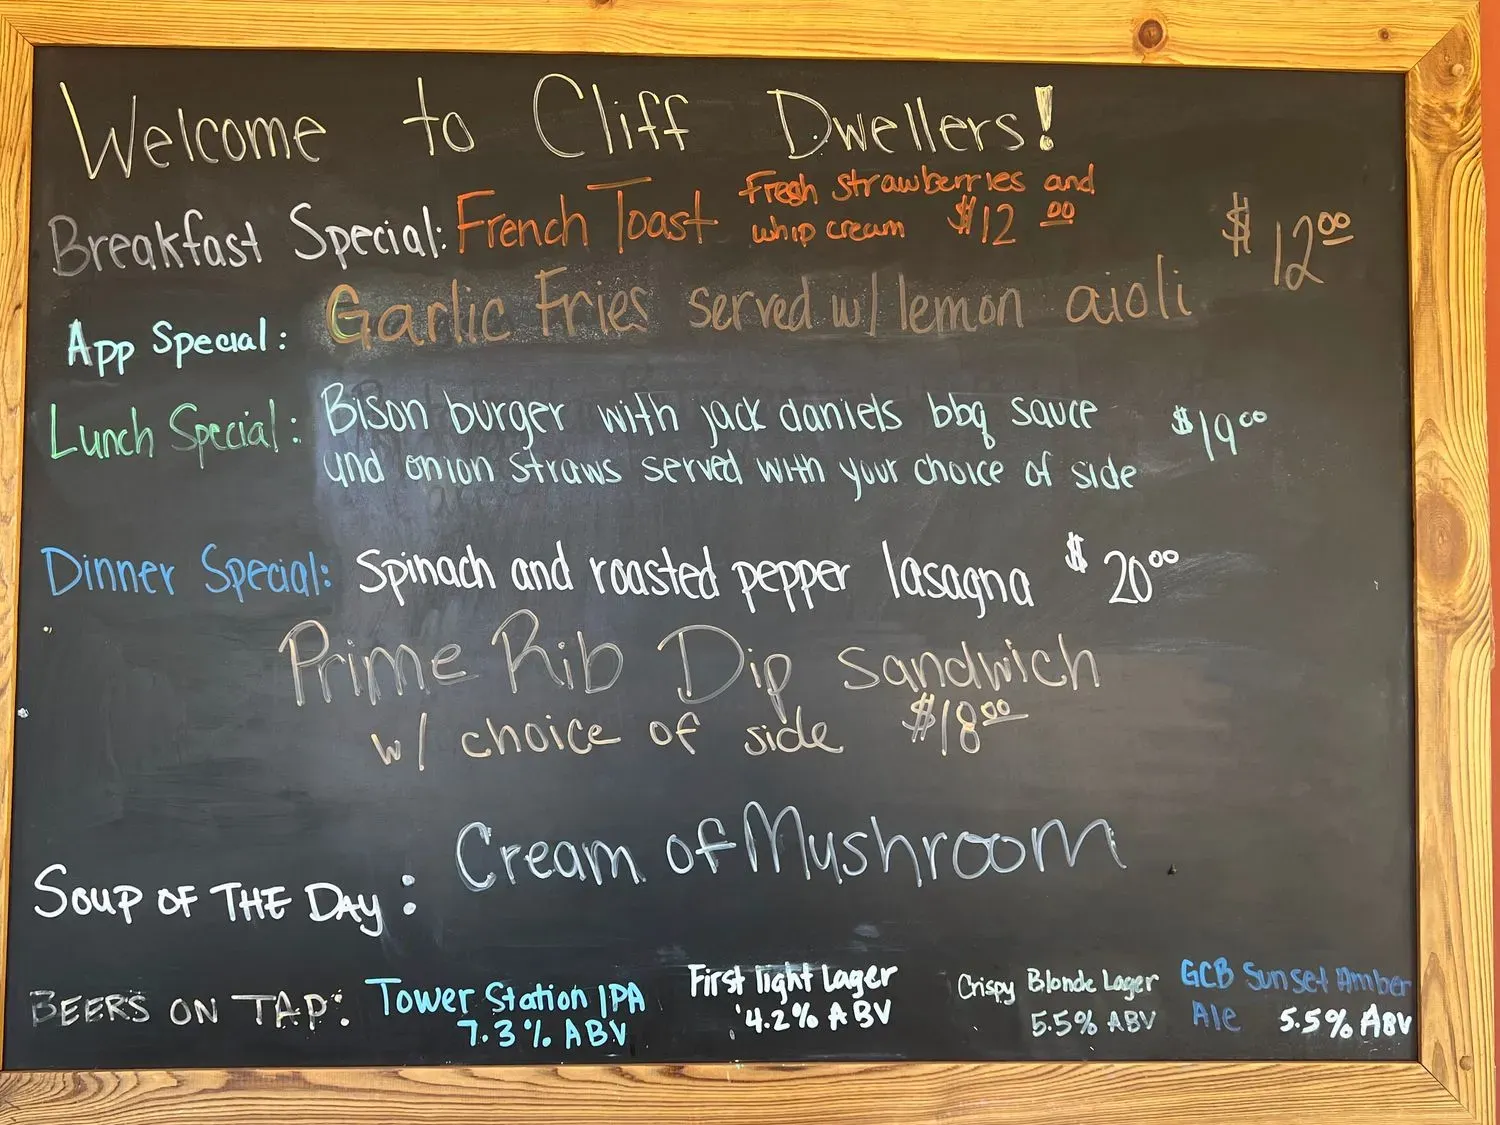 Welcome to Cliff Dwellers!
Breakfast Special: French Toast Fresh strawberries and
whip cream $12 00
App Special: Garlic Fries served w/ lemon aioli $12 00
Lunch Special: Bison burger with jack daniels bbq sauce $19 00
and onion straws served with your choice of side
Dinner Special: Spinach and roasted pepper lasagna $20 00
Prime Rib Dip Sandwich
w/ choice of side $18 00
Soup of the Day: Cream of Mushroom
Beers on Tap: Tower Station IPA
7.3% ABV
First light Lager
4.2% ABV
Crispy Blonde Lager
5.5% ABV
GCB Sunset Amber
Ale 5.5% ABV